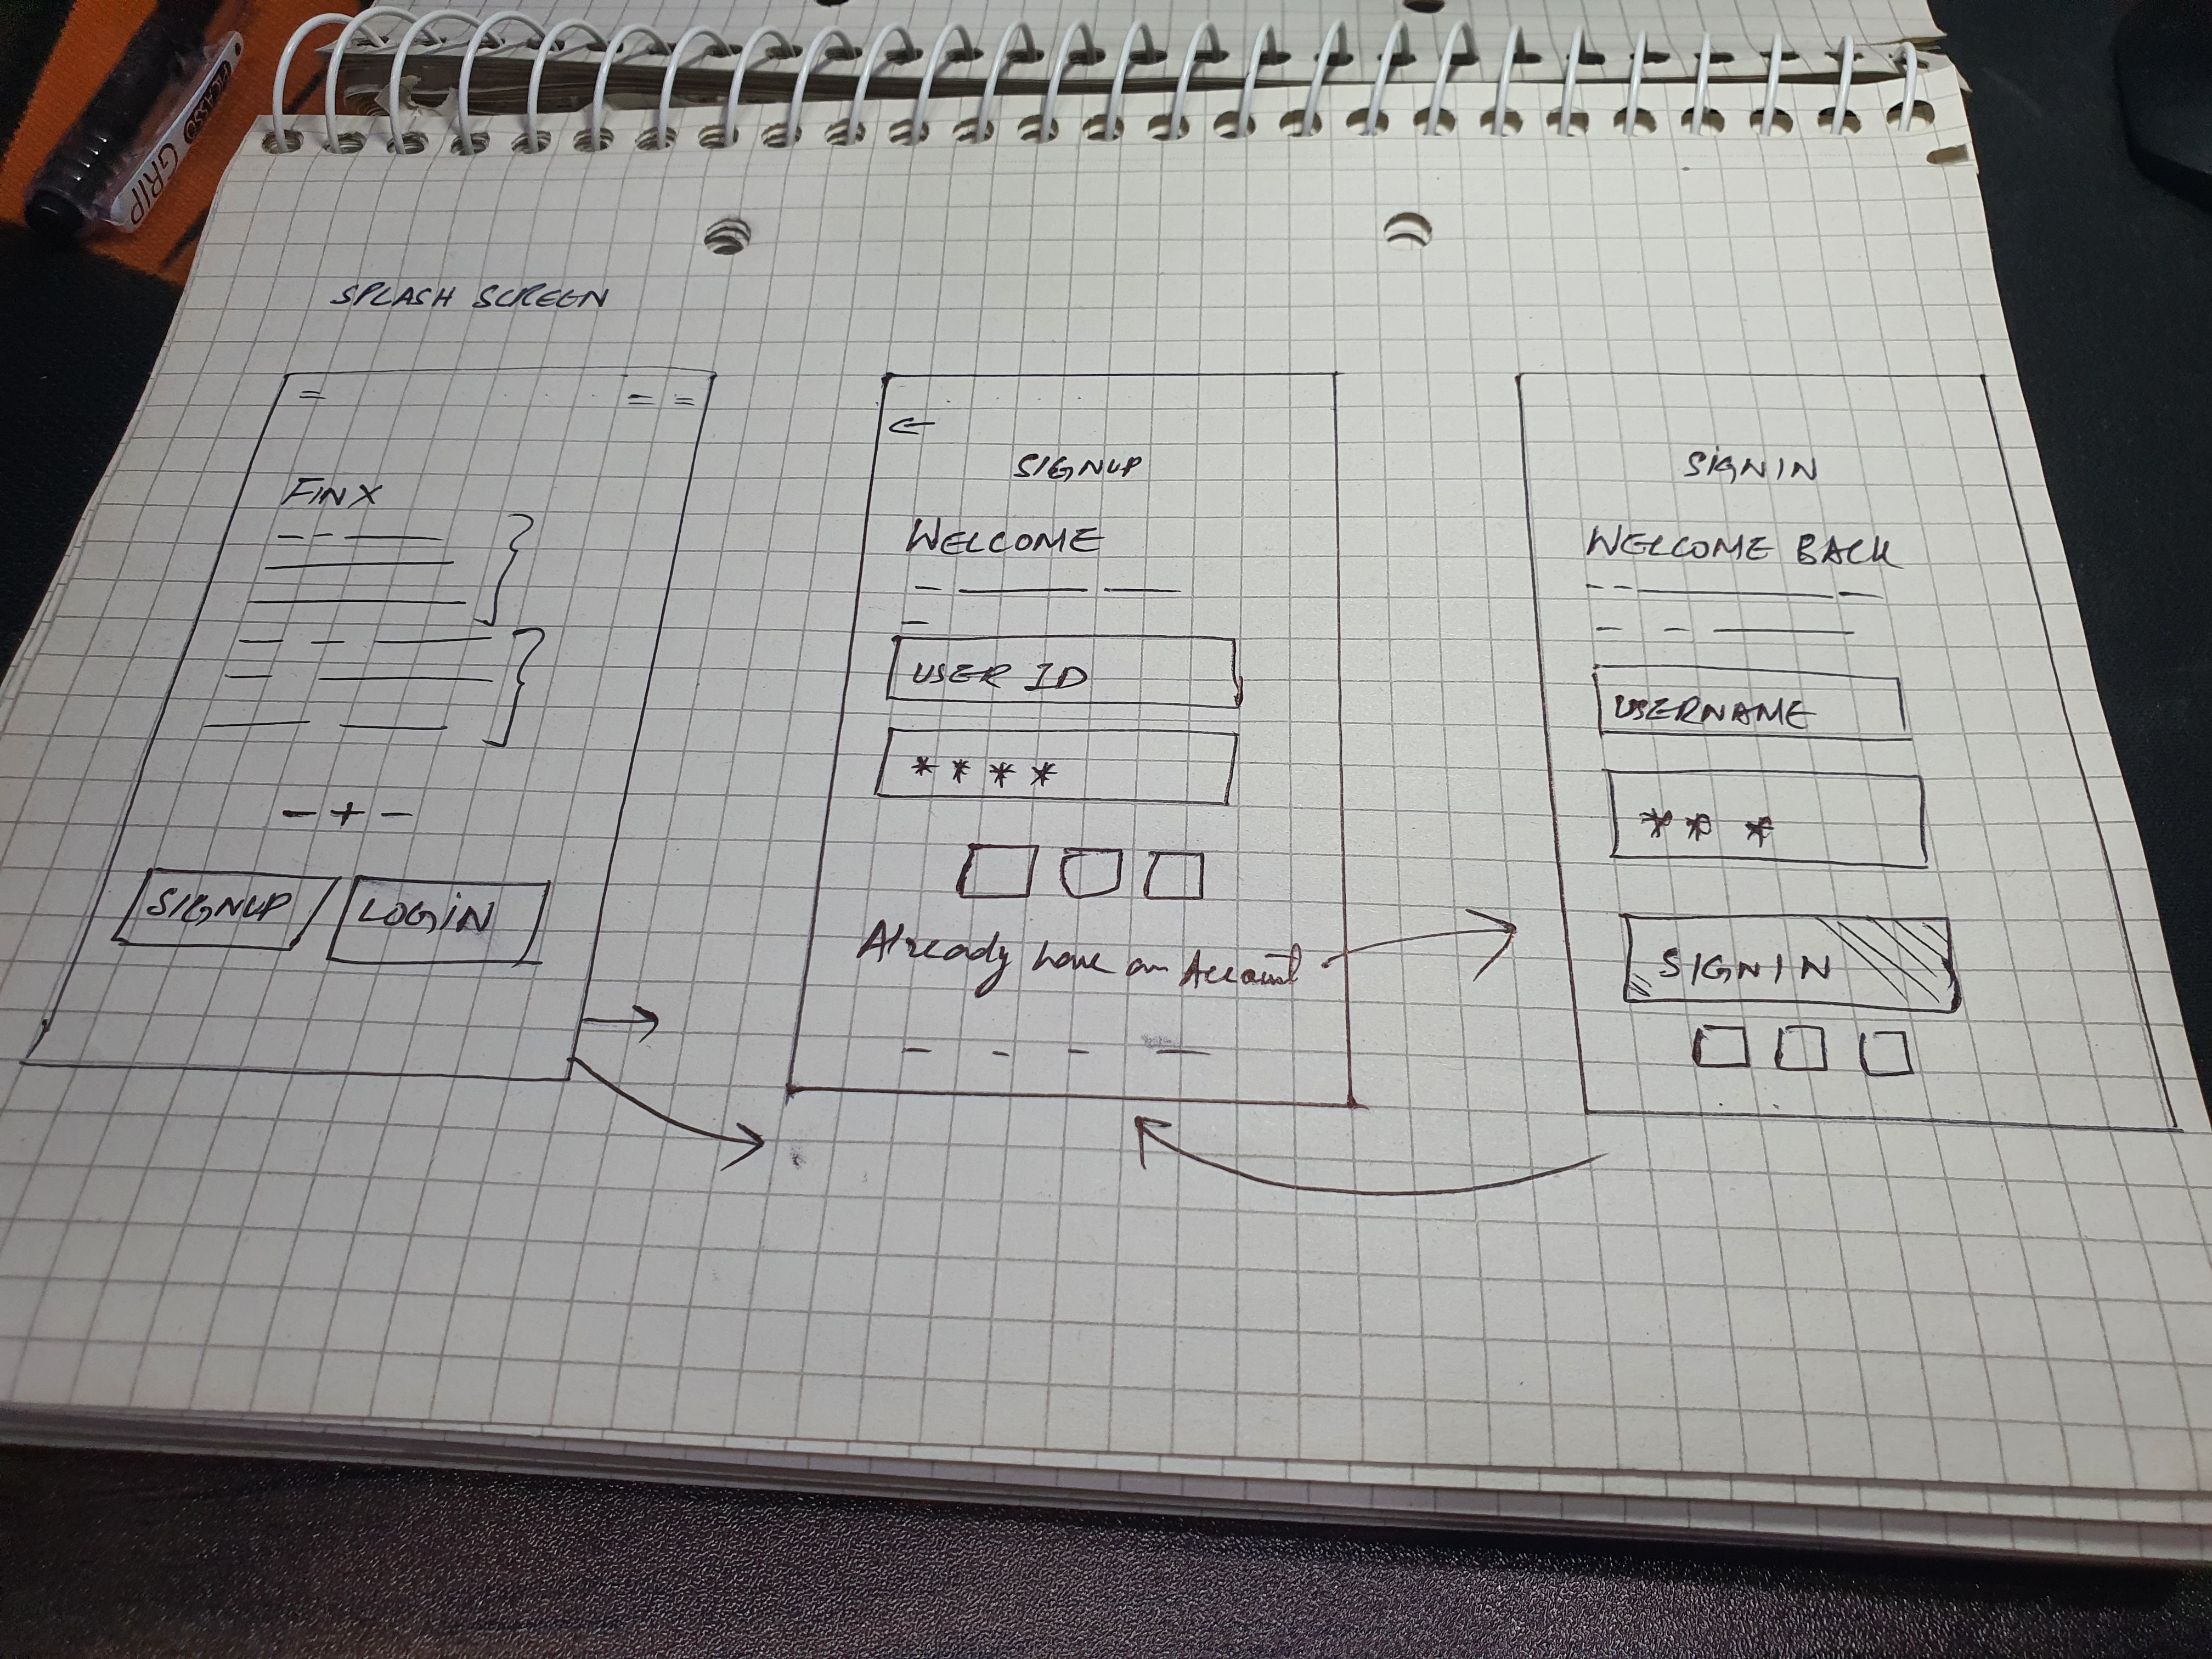 PICASSO GRIP
SPLASH SCREEN
FINX
- + -
SIGNUP
LOGIN
←
SIGNUP
WELCOME
USER ID
* * * *
Already have an Account
SIGNIN
WELCOME BACK
USERNAME
* * *
SIGNIN